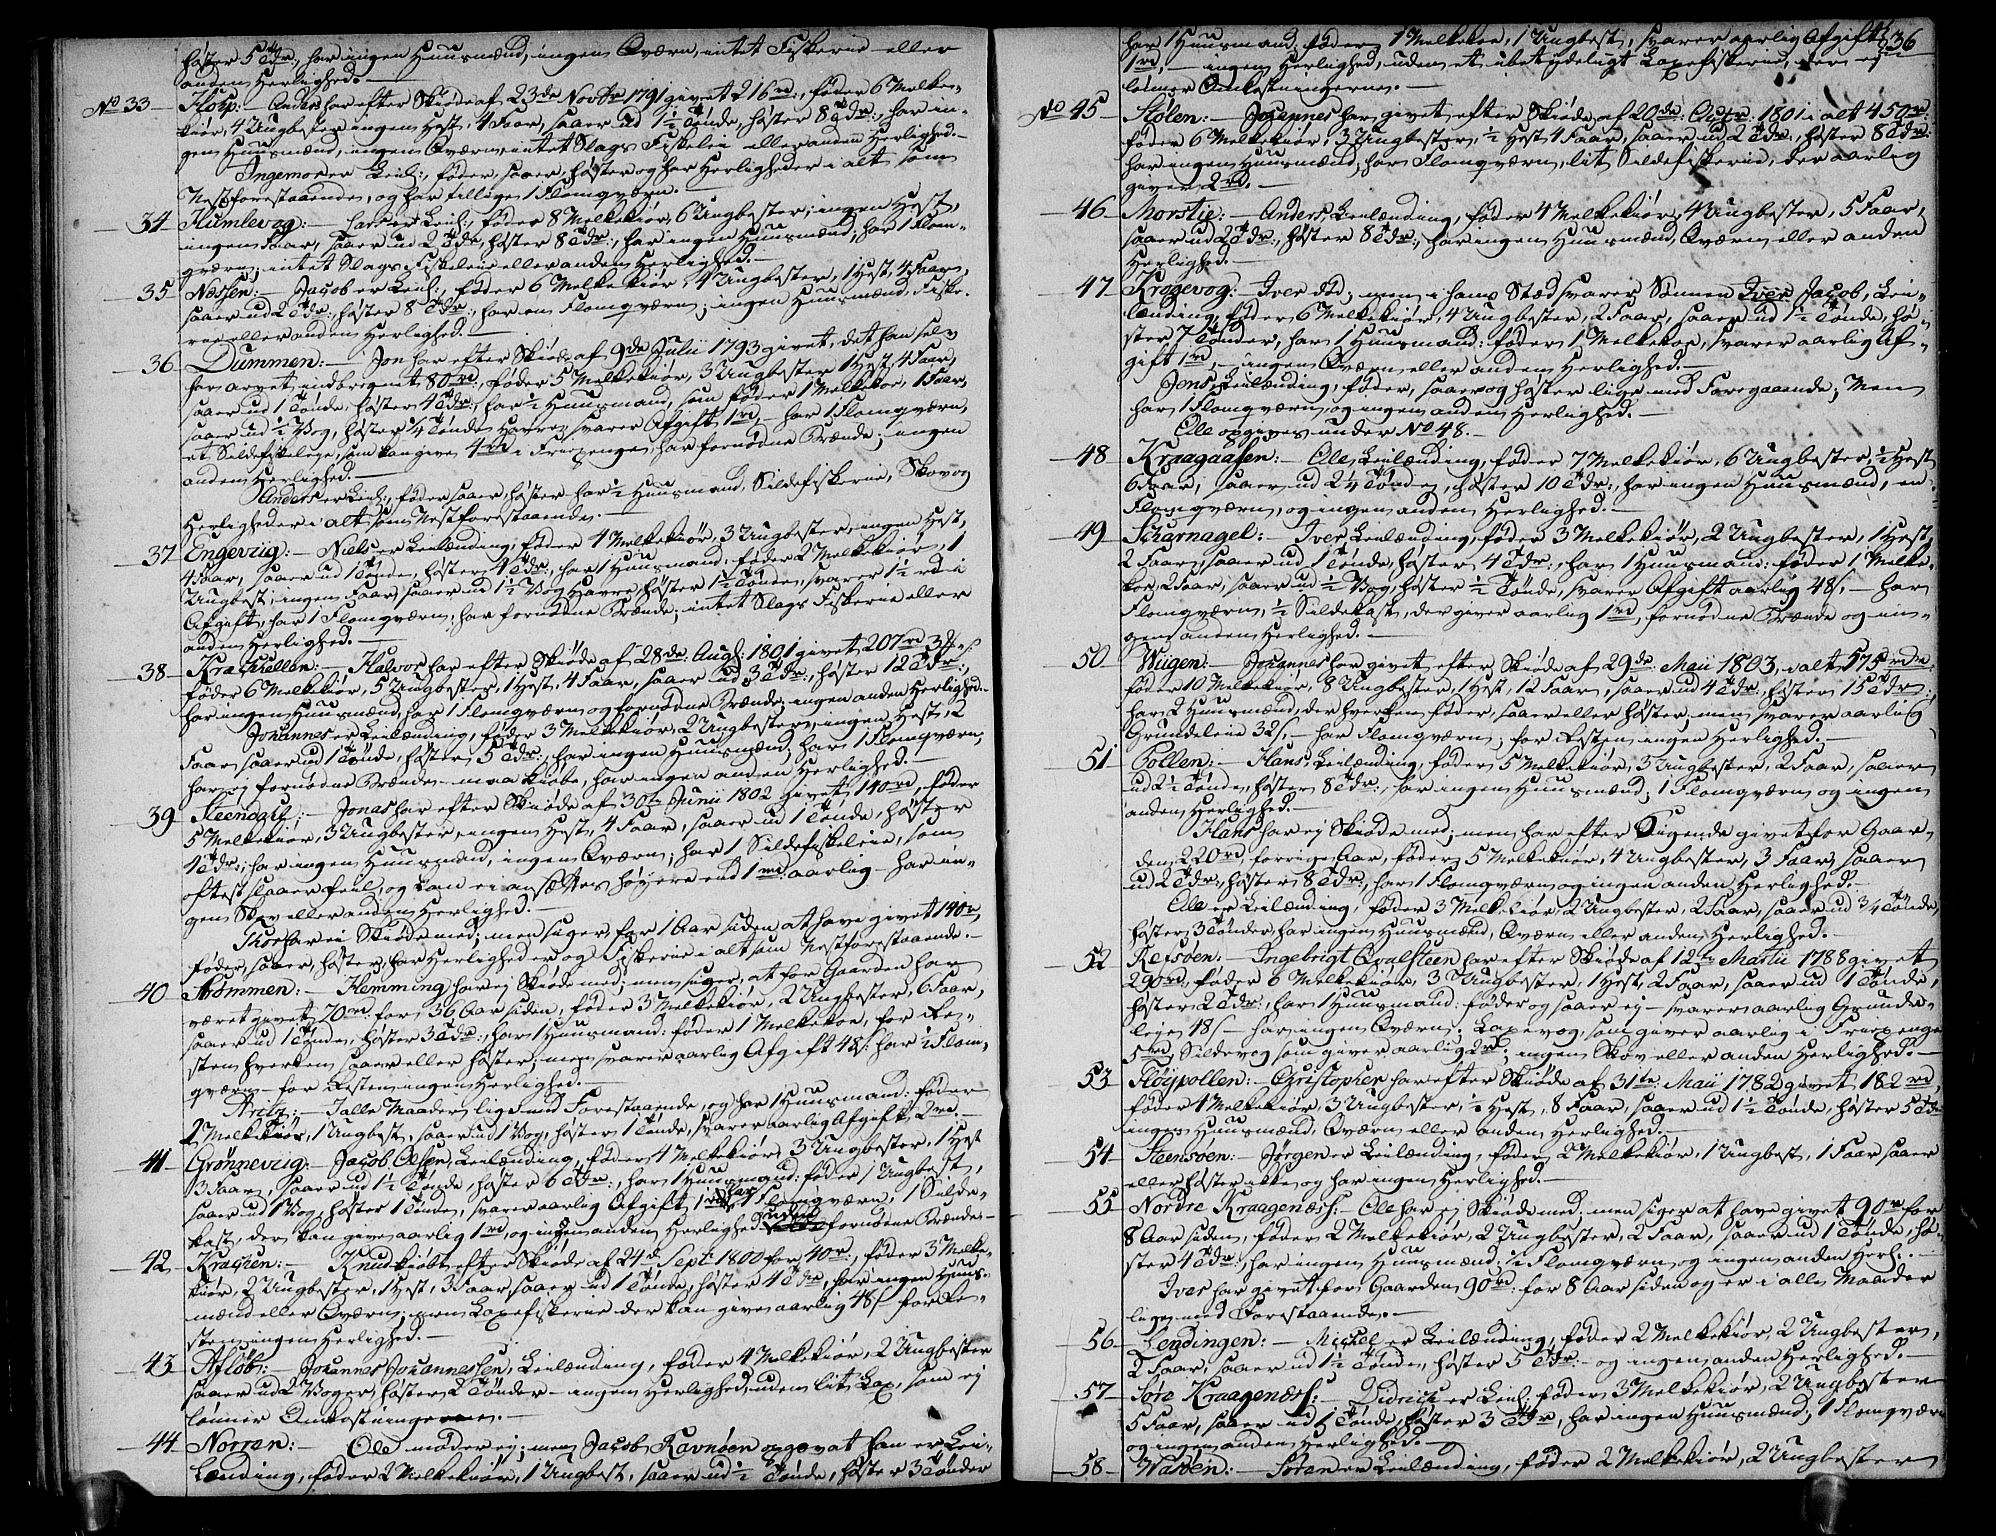 høster 5 Tdr:, har ingen Huusmænd, ingen Qværn, intet Fiskerie eller
anden Herlighed. —
No 33 — Fløip: — Anders har efter Skiøde af 23de Novbr 1791 givet 216 rd:, føder 6 Melke-
kiør, 4 Ungbester ingen Hest, 4 Faar, saaer ud 1½ Tønde, høster 8 Tdr:, har in-
gen Huusmænd, ingen Qværn, intet Slags Fiskeleie eller anden Herlighed. —
Ingemor er Leil:, føder, saaer, høster og har Herligheder i alt som
Nestforestaaende, og har tillige 1 Flomqværn. —
34 Humlevog: — Lars er Leil:, føder 8 Melkekiør, 6 Ungbester, ingen Hest,
ingen Faar, saaer ud 2 Tdr, høster 8 Tdr:, har ingen Huusmænd, har 1 Flom-
qværn, intet Slags Fiskeleie eller anden Herlighed. —
35 Næssen: — Jacob er Leil:, føder 6 Melkekiør, 4 Ungbester, 1 Hest, 4 Faar,
saaer ud 2 Tdr:, høster 8 Tdr:, har en Flomqværn; ingen Huusmænd, Fiske-
rie eller anden Herlighed. —
36 Dummen: — Jon har efter Skiøde af 9de Julii 1793 givet, det han selv
har arvet, indbregnet, 80 rd:, føder 5 Melkekiør, 3 Ungbester 1 Hest, 4 Faar,
saaer ud 1 Tønde, høster 4 Tdr:, har ½ Huusmand, som føder 1 Melkekoe, 1 Faar,
saaer ud ½ Vog, høster ¼ Tønde Havre, svarer Afgift 1 rd, — har 1 Flomqværn,
et Sildefiskeleie, som kan give 4 rd i Frexpenge, har fornødne Brænde; ingen
anden Herlighed. —
Anders er Leil:, føder saaer, høster har ½ Huusmand, Sildefiskerie, Skov og
Herligheder i alt som Nestforestaaende. —
37 Engeviig: — Niels er Leilænding, føder 4 Melkekiør, 3 Ungbester, ingen Hest,
4 Faar, saaer ud 1 Tønde, høster 4 Tdr:, har 1 Huusmand: føder 2 Melkekiør, 1
Ungbest, ingen Faar, saaer ud 1½ Vog Havre, høster 1½ Tønde, svarer 1½ rd i
Afgift, har 1 Flomqværn, har fornødne Brænde; intet Slags Fiskerie eller
anden Herlighed. —
38 Kraghellen: — Halvor har efter Skiøde af 28de Augs: 1801 givet 207 rd
føder 6 Melkekiør, 5 Ungbester, 1 Hest, 4 Faar, saaer ud 3 Tdr:, høster 12 Tdr:,
har ingen Huusmænd, har 1 Flomqværn og fornødne Brænde; ingen anden Herlighed. —
Johannes er Leilænding, føder 3 Melkekiør, 2 Ungbester, ingen Hest, 2
Faar, saaer ud 1 Tønde, høster 5 Tdr:, har ingen Huusmænd, har 1 Flomqværn,
har ej fornødne Brænde — maa kiøbe, har ingen anden Herlighed. —
39 Steensøe: — Jonas har efter Skiøde af 30te Junii 1802 givet 140 rd, føder
5 Melkekiør, 3 Ungbester, ingen Hest, 4 Faar, saaer ud 1 Tønde, høster
4 Tdr:, har ingen Huusmænd, ingen Qværn; har 1 Sildefiskeleie, som
oftest slaaer feil, og kan ei ansættes høyere end 1 rd: aarlig — har in-
gen Skov eller anden Herlighed. —
Thor har ei Skiøde med; men siger, for 1 Aar siden at have givet 140 rd,
føder, saaer, høster, har Herligheder og Fiskerie i alt som Nestforestaaende. —
40 Strømmen: — Hemming har ej Skiøde med; men siger, at for Gaarden har
været givet 70 rd: for 36 Aar siden, føder 3 Melkekiør, 2 Ungbester, 6 Faar,
saaer ud 1 Tønde, høster 3 Tdr:, har 1 Huusmand: føder 1 Melkekoe, for Re-
sten hverken saaer eller høster; men svarer aarlig Afgift 48 s: har 1 Flom-
qværn — for Resten ingen Herlighed. —
Fritz: — I alle Maader lige med Forestaaende, og har 1 Huusmand: føder
2 Melkekiør, 1 Ungbest, saaer ud 1 Vog, høster 1 Tønde, svarer aarlig Afgift 2 rd. —
41 Grønneviig: — Jacob Olsen, Leilænding, føder 4 Melkekiør, 3 Ungbester, 1 Hest
3 Faar, saaer ud 1½ Tønde, høster 6 Tdr:, har 1 Huusmand: føder 1 Ungbest,
saaer ud 1 Vog, høster 1 Tønde, svarer aarlig Afgift 1 rd, har 1 Flomqværn, 1 Silde-
kast, der kan give aarlig 1 rd, og ingen anden Herlighed, uden fornødne Brænde. —
42 Kraghen: — Knud kiøbt efter Skiøde af 24d Septr 1800 for 40 rd:, føder 3 Melke-
kiør, 2 Ungbester, 1 Hest, 3 Faar, saaer ud 1 Tønde, høster 4 Tdr, har ingen Huus-
mænd eller Qværn; men Laxefiskerie der kan give aarlig 48 s — for Re-
sten ingen Herlighed. —
43 Afløb: — Johannes Johannessen, Leilænding, føder 4 Melkekiør, 2 Ungbester
saaer ud 2 Voger, høster 2 Tønder — ingen Herlighed, uden lit Lax, som ej
lønner Omkostningerne. —
44 Norren: — Ole møder ej; men Jacob Ravnøen opgav at han er Lei-
lænding, føder 2 Melkekiør, 1 Ungbest, saaer ud ½ Tønde, høster 3 Tønder
36
har 1 Huusmand: føder 1 Melkekoe, 1 Ungbest, svarer aarlig Afgift
1 rd, — ingen Herlighed, uden et ubetydeligt Laxefiskerie, der ej
lønner Omkostningerne. —
No 45 Stølen: — Johannes har givet efter Skiøde af 20de Octbr 1801 i alt 450 rd:
føder 6 Melkekiør, 3 Ungbester, ½ Hest 4 Faar, saaer ud 2 Tdr:, høster 8 Tdr:
har ingen Huusmænd, har Flomqværn, lit Sildefiskerie, der aarlig
giver 2 rd. —
46 Morstie: — Anders, Leilænding, føder 4 Melkekiør, 4 Ungbester, 5 Faar,
saaer ud 2 Tdr:, høster 8 Tdr:, har ingen Huusmænd, Qværn eller anden
Herlighed. —
47 Krogevog: — Iver dd; men i hans Stæd svarer Sønnen Iver Jacob, Lei-
lænding, føder 6 Melkekiør, 4 Ungbester, 2 Faar, saaer ud 1½ Tønde, hø-
ster 7 Tønder, har 1 Huusmand: føder 1 Melkekoe, svarer aarlig Af-
gift 1 rd, — ingen Qværn eller anden Herlighed. —
Jens, Leilænding, føder, saaer og høster lige med Foregaaende; Men
har 1 Flomqværn, og ingen anden Herlighed. —
Ole opgives under No 48. —
48 Kraagaasen: — Ole, Leilænding, føder 7 Melkekiør, 6 Ungbester, ½ Hest
6 Faar, saaer ud 2¼ Tønde, høster 10 Tdr:, har ingen Huusmænd, en
Flomqværn, og ingen anden Herlighed. —
49 Skarnagel: — Iver Leilænding, føder 3 Melkekiør, 2 Ungbester, 1 Hest,
2 Faar, saaer ud 1 Tønde, høster 4 Tdr:, har 1 Huusmand: føder 1 Melke-
koe, 2 Faar, saaer ud ½ Vog, høster ½ Tønde, svarer Afgift aarlig 48 s, — har
Flomqværn, ½ Sildekast, der giver aarlig 1 rd, fornødne Brænde og in-
gen anden Herlighed. —
50 Wiigen: — Johannes har givet efter Skiøde af 29de Maii 1803, i alt 575 rdr
føder 10 Melkekiør, 8 Ungbester, 1 Hest, 12 Faar, saaer ud 4 Tdr:, høster 15 Tdr:,
har 2 Huusmænd, der hverken føder, saaer eller høster, men svarer aarlig
Grundeleie 32 s, — har Flomqværn; for Resten ingen Herlighed. —
51 Pollen: — Hans, Leilænding, føder 5 Melkekiør, 3 Ungbester, 2 Faar, saaer
ud 2½ Tønde, høster 8 Tdr:, har ingen Huusmænd; 1 Flomqværn og ingen
anden Herlighed. —
Hans har ej Skiøde med; men har efter Sigende givet for Gaar-
den 220 rd, forrige Aar, føder 5 Melkekiør, 4 Ungbester, 3 Faar, saaer
ud 2 Tdr:, høster 8 Tdr:, har 1 Flomqværn og ingen anden Herlighed. —
Ole er Leilænding, føder 3 Melkekiør, 2 Ungbester, 2 Faar, saaer ud ¾ Tønde,
høster 3 Tønder, har ingen Huusmænd, Qværn eller anden Herlighed. —
52 Reisøen: — Ingebrigt Qvalsteen har efter Skiøde af 12te Martii 1788 givet
290 rd, føder 6 Melkekiør, 3 Ungbester, 1 Hest, 2 Faar, saaer ud 1 Tønde,
høster 2 Tdr:, har 1 Huusmand: føder og saaer ej — svarer aarlig Grunde-
leje 18 s — har ingen Qværn; Laxevog, som giver aarlig i Frexpenge
5 rd, Sildevog som giver aarlig 2 rd; ingen Skov eller anden Herlighed. —
53 Støypollen: — Christopher har efter Skiøde af 31te Maii 1782 givet 182 rd,
føder 4 Melkekiør, 3 Ungbester, ½ Hest, 8 Faar, saaer ud 1½ Tønde, høster 5 Tdr
ingen Huusmænd, Qværn eller anden Herlighed. —
54 Steensøen: — Jørgen er Leilænding, føder 2 Melkekiør, 1 Ungbest, 1 Faar saaer
eller høster ikke og har ingen Herlighed. —
55 Nordre Kraagenæss: — Ole har ej Skiøde med: men siger at have givet 90 rd for
8 Aar siden, føder 2 Melkekiør, 2 Ungbester, 2 Faar, saaer ud 1 Tønde, hø-
ster 4 Tdr:, har ingen Huusmænd, ½ Flomqværn og ingen anden Herl:. —
Iver har givet for Gaarden 90 rd: for 8 Aar siden og er i alle Maader
lige med Forestaaende. —
56 Lendingen: — Michel er Leilænding, føder 2 Melkekiør, 2 Ungbester,
2 Faar, saaer ud 1½ Tønde, høster 5 Tdr: — og ingen anden Herlighed. —
57 Søre Kraagenæss: — Didrich er Leil: føder 3 Melkekiør, 2 Ungbester
5 Faar, saaer ud 1 Tønde, høster 3 Tdr, har ingen Huusmænd, 1 Flomqværn
og ingen anden Herlighed. —
58 Wasøen: — Søren er Leilænding, føder 2 Melkekiør, 2 Ungbester